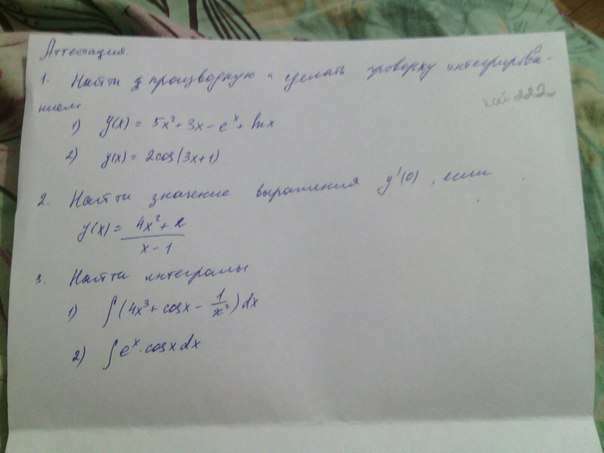 Аттестация.
1. Найти производную и сделать проверку интегрирова-
нием
1) y(x) = 5x² + 3x - eˣ + ln x
2) y(x) = 2cos(3x+1)
каб 222
2. Найти значение выражения y'(0), если
y(x) = (4x² + 2)/(x - 1)
3. Найти интегралы
1) ∫(4x³ + cosx - 1/x²)dx
2) ∫eˣ·cosxdx